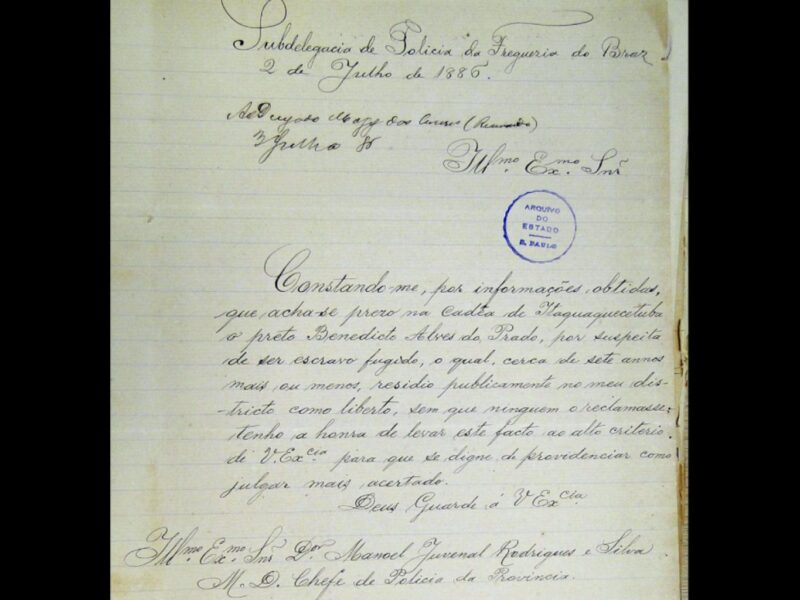 Subdelegacia de Policia da Fregueria do Braz
2 de Julho de 1886.
3 Julho
Illmo. Exmo. Snr
ARQUIVO
DO
ESTADO
S. PAULO
Constando-me, por informações obtidas,
que acha-se prezo na Cadêa de Itaquaquecetuba
o preto Benedicto Alves do Prado, por suspeita
de ser escravo fugido, o qual, cerca de sete annos
mais ou menos, residio publicamente no meu dis-
-tricto como liberto, sem que ninguem o reclamasse;
tenho a honra de levar este facto ao alto criterio
de V. Excia para que se digne de providenciar como
julgar mais acertado.
Deus Guarde á V Excia
Illmo. Exmo. Snr Dor Manoel Juvenal Rodrigues e Silva
M. D. Chefe de Policia da Provincia.